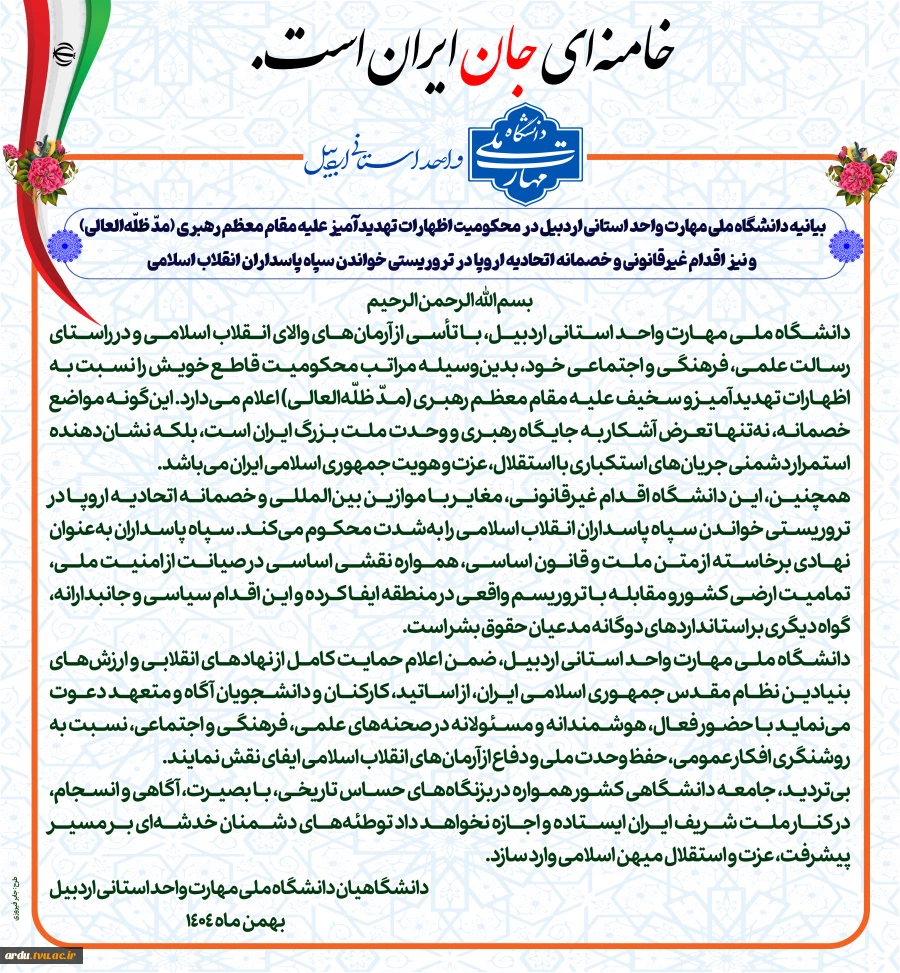 خامنه‌ای جان ایران است.
دانشگاه ملی مهارت
واحد استانی اردبیل
بیانیه دانشگاه ملی مهارت واحد استانی اردبیل در محکومیت اظهارات تهدیدآمیز علیه مقام معظم رهبری (مدّ ظلّه‌العالی)
و نیز اقدام غیرقانونی و خصمانه اتحادیه اروپا در تروریستی خواندن سپاه پاسداران انقلاب اسلامی
بسم‌الله‌الرحمن‌الرحیم
دانشگاه ملی مهارت واحد استانی اردبیل، با تأسی از آرمان‌های والای انقلاب اسلامی و در راستای
رسالت علمی، فرهنگی و اجتماعی خود، بدین‌وسیله مراتب محکومیت قاطع خویش را نسبت به
اظهارات تهدیدآمیز و سخیف علیه مقام معظم رهبری (مدّ ظلّه‌العالی) اعلام می‌دارد. این‌گونه مواضع
خصمانه، نه‌تنها تعرض آشکار به جایگاه رهبری و وحدت ملت بزرگ ایران است، بلکه نشان‌دهنده
استمرار دشمنی جریان‌های استکباری با استقلال، عزت و هویت جمهوری اسلامی ایران می‌باشد.
همچنین، این دانشگاه اقدام غیرقانونی، مغایر با موازین بین‌المللی و خصمانه اتحادیه اروپا در
تروریستی خواندن سپاه پاسداران انقلاب اسلامی را به‌شدت محکوم می‌کند. سپاه پاسداران به‌عنوان
نهادی برخاسته از متن ملت و قانون اساسی، همواره نقشی اساسی در صیانت از امنیت ملی،
تمامیت ارضی کشور و مقابله با تروریسم واقعی در منطقه ایفا کرده و این اقدام سیاسی و جانبدارانه،
گواه دیگری بر استانداردهای دوگانه مدعیان حقوق بشر است.
دانشگاه ملی مهارت واحد استانی اردبیل، ضمن اعلام حمایت کامل از نهادهای انقلابی و ارزش‌های
بنیادین نظام مقدس جمهوری اسلامی ایران، از اساتید، کارکنان و دانشجویان آگاه و متعهد دعوت
می‌نماید با حضور فعال، هوشمندانه و مسئولانه در صحنه‌های علمی، فرهنگی و اجتماعی، نسبت به
روشنگری افکار عمومی، حفظ وحدت ملی و دفاع از آرمان‌های انقلاب اسلامی ایفای نقش نمایند.
بی‌تردید، جامعه دانشگاهی کشور همواره در بزنگاه‌های حساس تاریخی، با بصیرت، آگاهی و انسجام،
در کنار ملت شریف ایران ایستاده و اجازه نخواهد داد توطئه‌های دشمنان خدشه‌ای بر مسیر
پیشرفت، عزت و استقلال میهن اسلامی وارد سازد.
دانشگاهیان دانشگاه ملی مهارت واحد استانی اردبیل
بهمن ماه ۱۴۰۴
طرح: جابر فیروزی
ardu.tvu.ac.ir